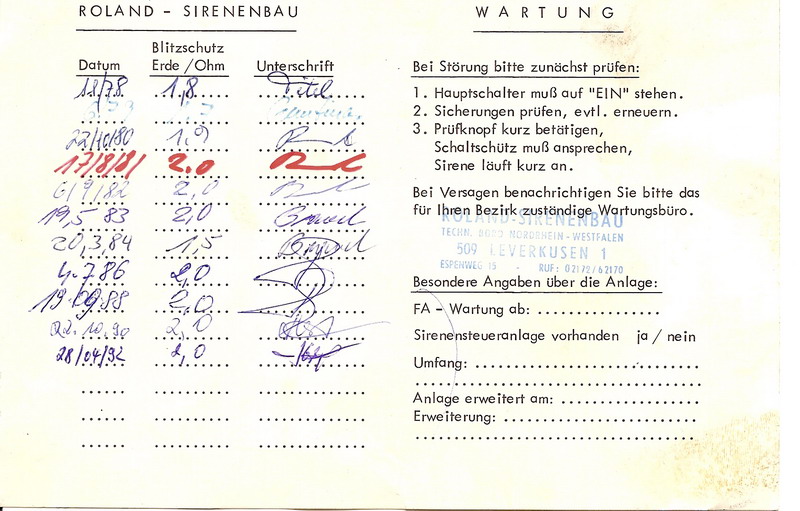 ROLAND - SIRENENBAU
Datum
Blitzschutz
Erde /Ohm
Unterschrift
11/78 1,8
22/10/80 1,9
17/8/81 2.0
6/9/82 2,0
19,5 83 2,0
20,3,84 1,5
4.7.86 2,0
19.09.88 2,0
22.10.90 2,0
28/04/92 2,0
WARTUNG
Bei Störung bitte zunächst prüfen:
1. Hauptschalter muß auf "EIN" stehen.
2. Sicherungen prüfen, evtl. erneuern.
3. Prüfknopf kurz betätigen,
Schaltschütz muß ansprechen,
Sirene läuft kurz an.
Bei Versagen benachrichtigen Sie bitte das
für Ihren Bezirk zuständige Wartungsbüro.
ROLAND-SIRENENBAU
TECHN. BÜRO NORDRHEIN-WESTFALEN
509 LEVERKUSEN 1
ESPENWEG 15 - RUF: 02172/62170
Besondere Angaben über die Anlage:
FA - Wartung ab: ..............
Sirenensteueranlage vorhanden ja / nein
Umfang: ..............................
Anlage erweitert am: ................
Erweiterung: .........................